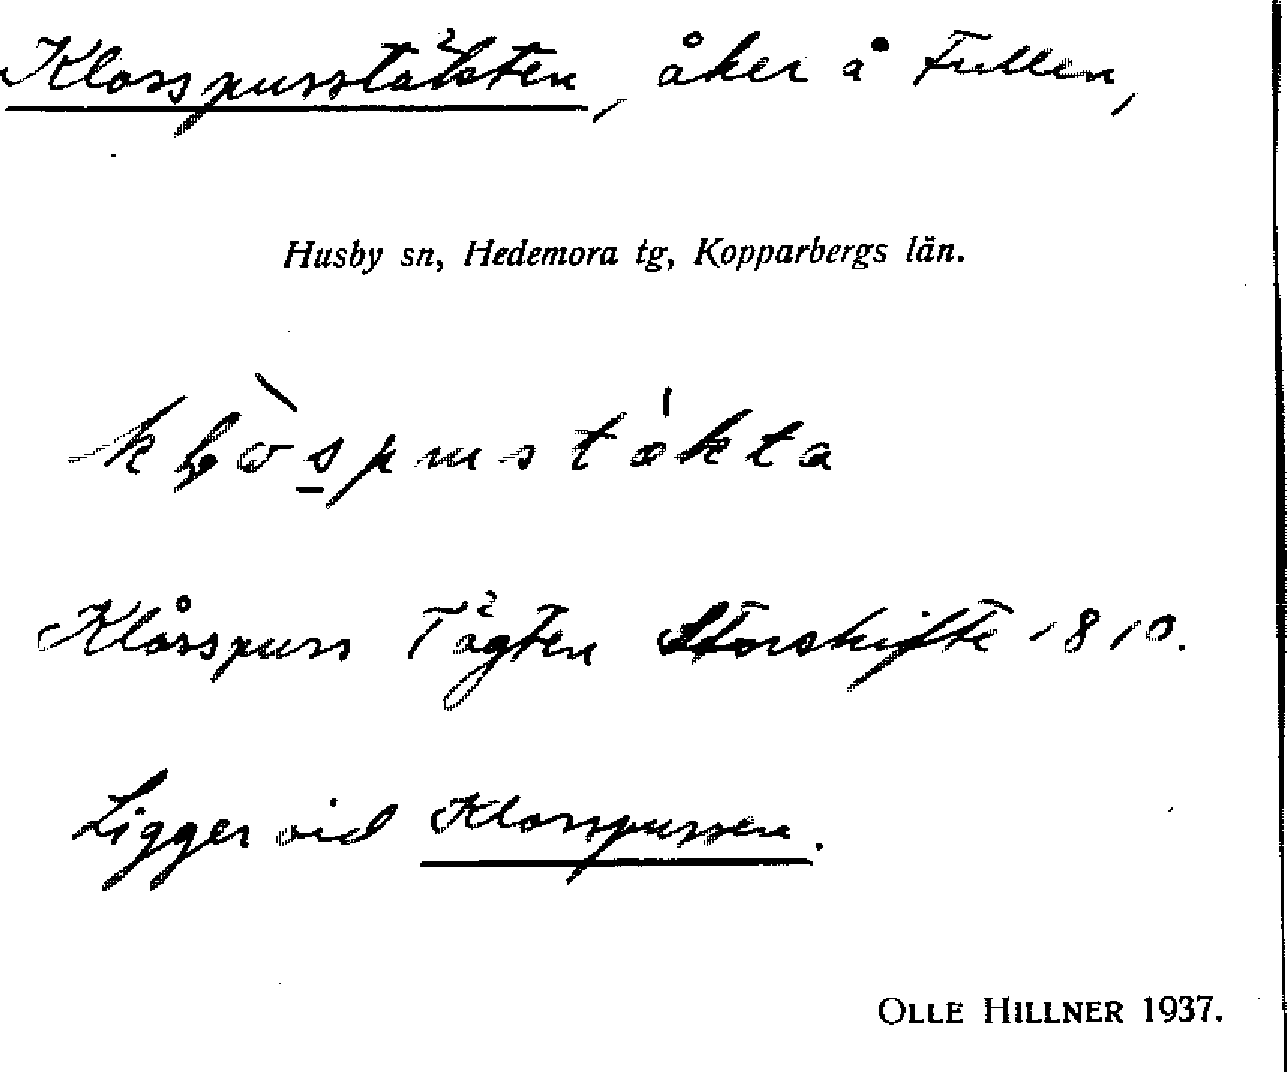 Klosspusstäkten, åker å Fullen,
Husby sn, Hedemora tg, Kopparbergs län.
Klåsspuss Tägten Storskifte 1810.
Ligger vid Klosspussen.
OLLE HILLNER 1937.